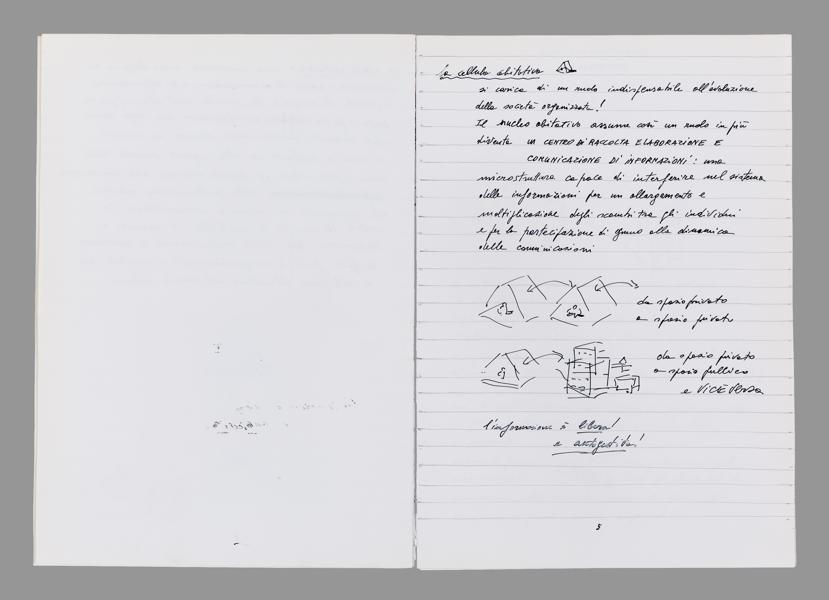 la cellula abitativa
si carica di un ruolo indispensabile all'evoluzione
della società organizzata!
Il nucleo abitativo assume così un ruolo in più
diventa UN CENTRO DI RACCOLTA ELABORAZIONE E
COMUNICAZIONE DI INFORMAZIONI: una
microstruttura capace di interferire nel sistema
delle informazioni per un allargamento e
moltiplicazione degli scambi tra gli individui
e per la partecipazione di ognuno alla dinamica
delle comunicazioni
da spazio privato
a spazio privato
da spazio privato
a spazio pubblico
e VICEVERSA
l'informazione è libera!
e autogestita!
5